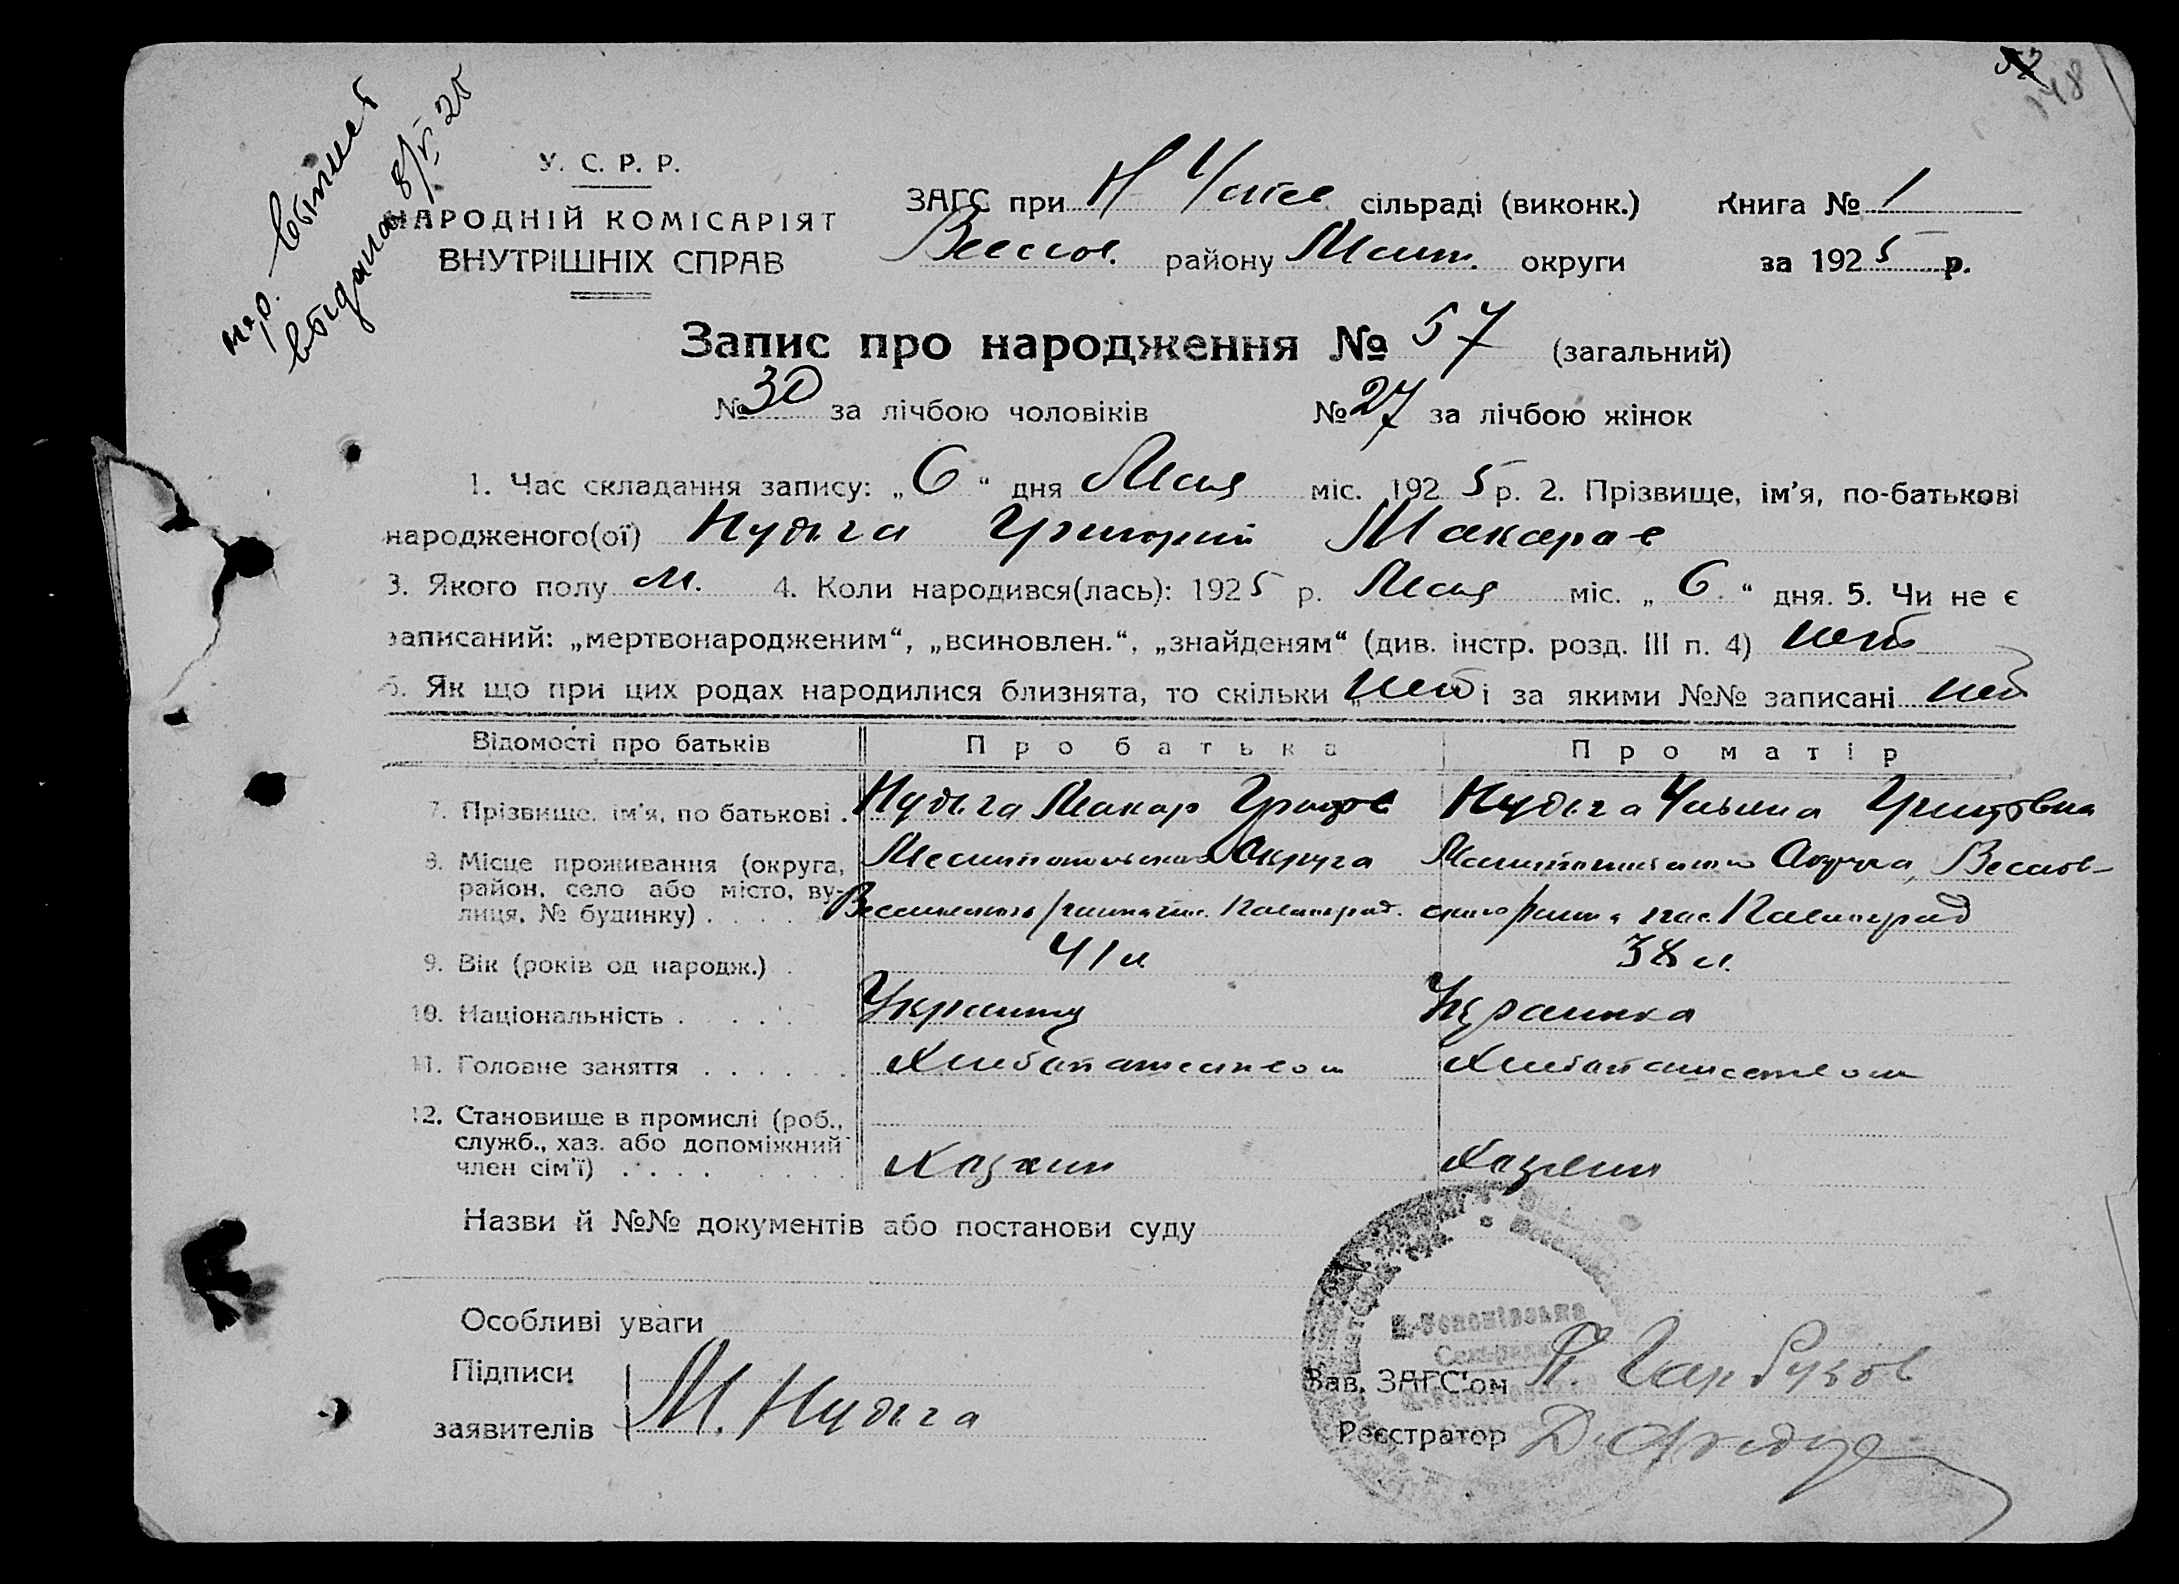 148
выписъ
выдана 8/V 25
У. С. Р. Р.
НАРОДНІЙ КОМІСАРІЯТ
ВНУТРІШНІХ СПРАВ
ЗАГС при Н сільраді (виконк.) Книга № 1
Весел. району Мелит. округи за 1925 р.
Запис про народження № 57 (загальний)
№ 30 за лічбою чоловіків № 27 за лічбою жінок
1. Час складання запису: „6“ дня Мая міс. 1925 р. 2. Прізвище, ім’я, по-батькові
народженого(ої) Нудьга Григорий Макаров
3. Якого полу м. 4. Коли народився(лась): 1925 р. Мая міс. „6.“ дня. 5. Чи не є
записаний: „мертвонародженим“, „всиновлен.“, „знайденям“ (див. інстр. розд. III п. 4) нет
6. Як що при цих родах народилися близнята, то скільки „нет і за якими №№ записані нет
Відомості про батьків Про батька Про матір
7. Прізвище, ім’я, по батькові . Нудьга Макар Григор Нудьга Ульяна Григоровна
8. Місце проживання (округа, Мелитопольская Округа Мелитопольская Округа, Веселов-
район, село або місто, ву-
лиця, № будинку) . . . . Веселовского района пос. Калинград. ского района пос. Калинград
9. Вік (років од народж.) . 41 л 38 л.
10. Національність . . . . . Украинец Украинка
11. Головне заняття . . . . . . Хлебопашеством Хлебопашеством
12. Становище в промислі (роб.,
служб., хаз. або допоміжний
член сім’ї) . . . . . . . . Хазяин Хазяин
Назви й №№ документів або постанови суду
Особливі уваги
Підписи
заявителів М. Нудьга
Зав. ЗАГС’ом П. Гарбузов
Реєстратор Д.